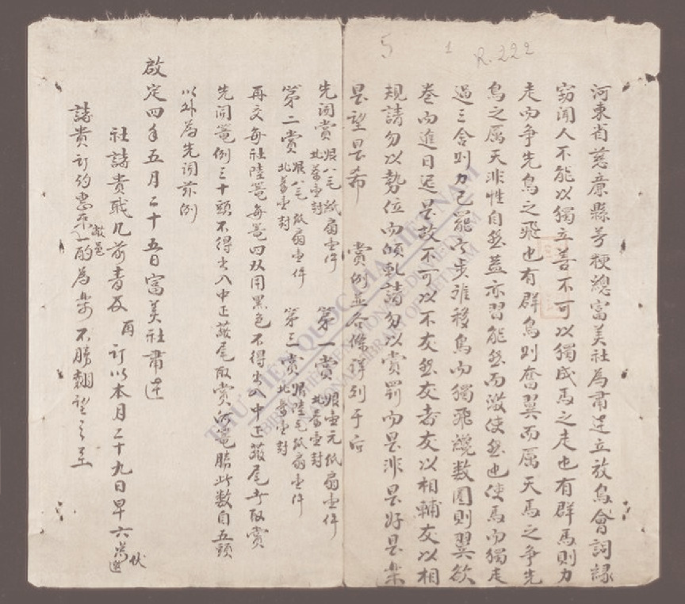 5 1 R.222
河東省慈廉縣芳梗總富美社為肅迋立放鳥會詞緣
窃聞人不能以獨立善不可以獨成馬之走也有群馬則力
走而争先鳥之飛也有群鳥則奮翼而属天馬之争先
鳥之属天非性自然盖亦習能然而激使然也使馬而獨走
過三舍則力已罷而步难移鳥而獨飛繞数圍則翼欲
卷而進日迟是故不可以不友然友者友以相輔友以相
規請勿以勢位而傾軋請勿以賞罰而是非是好是楽
是望是希
賞例並各條詳列于后
先開賞 銀八毛 紙扇壹件 北蒼壹封 第一賞 銀壹元 紙扇壹件 北蒼壹封
第二賞 銀八毛 紙扇壹件 北蒼壹封 第三賞 銀陸毛 紙扇壹件 北蒼壹封
再文每社陸篭每篭四双同黑色不得出入中正蔽尾方取賞
先開篭例三十頭不得出入中正蔽尾取賞 篭勝此数自五頭
以外為先詞前例
啟定四年五月二十五日富美社肅迋
社諸貴戢凡前者友再訂以本月二十九日早六
諸貴訂約惠示一酌為楽不勝翹望之至
THƯ VIỆN QUỐC GIA VIỆT NAM
NATIONAL LIBRARY OF VIETNAM